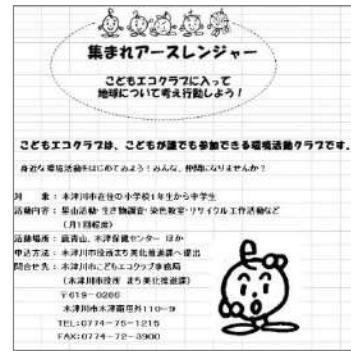 集まれアースレンジャー
こどもエコクラブに入って
地球について考え行動しよう！
こどもエコクラブは、こどもが誰でも参加できる環境活動クラブです。
身近な環境活動をはじめてみよう！みんな、仲間になりませんか？
対　象：木津川市在住の小学校1年生から中学生
活動内容：里山活動・生き物調査・染色教室・リサイクル工作活動など
（月1回程度）
活動場所：鹿背山、木津保健センター ほか
申込方法：木津川市役所まち美化推進課へ提出
問合せ先：木津川市こどもエコクラブ事務局
（木津川市役所 まち美化推進課）
〒619-0286
木津川市木津南垣外110-9
TEL:0774-75-1215
FAX:0774-72-3900